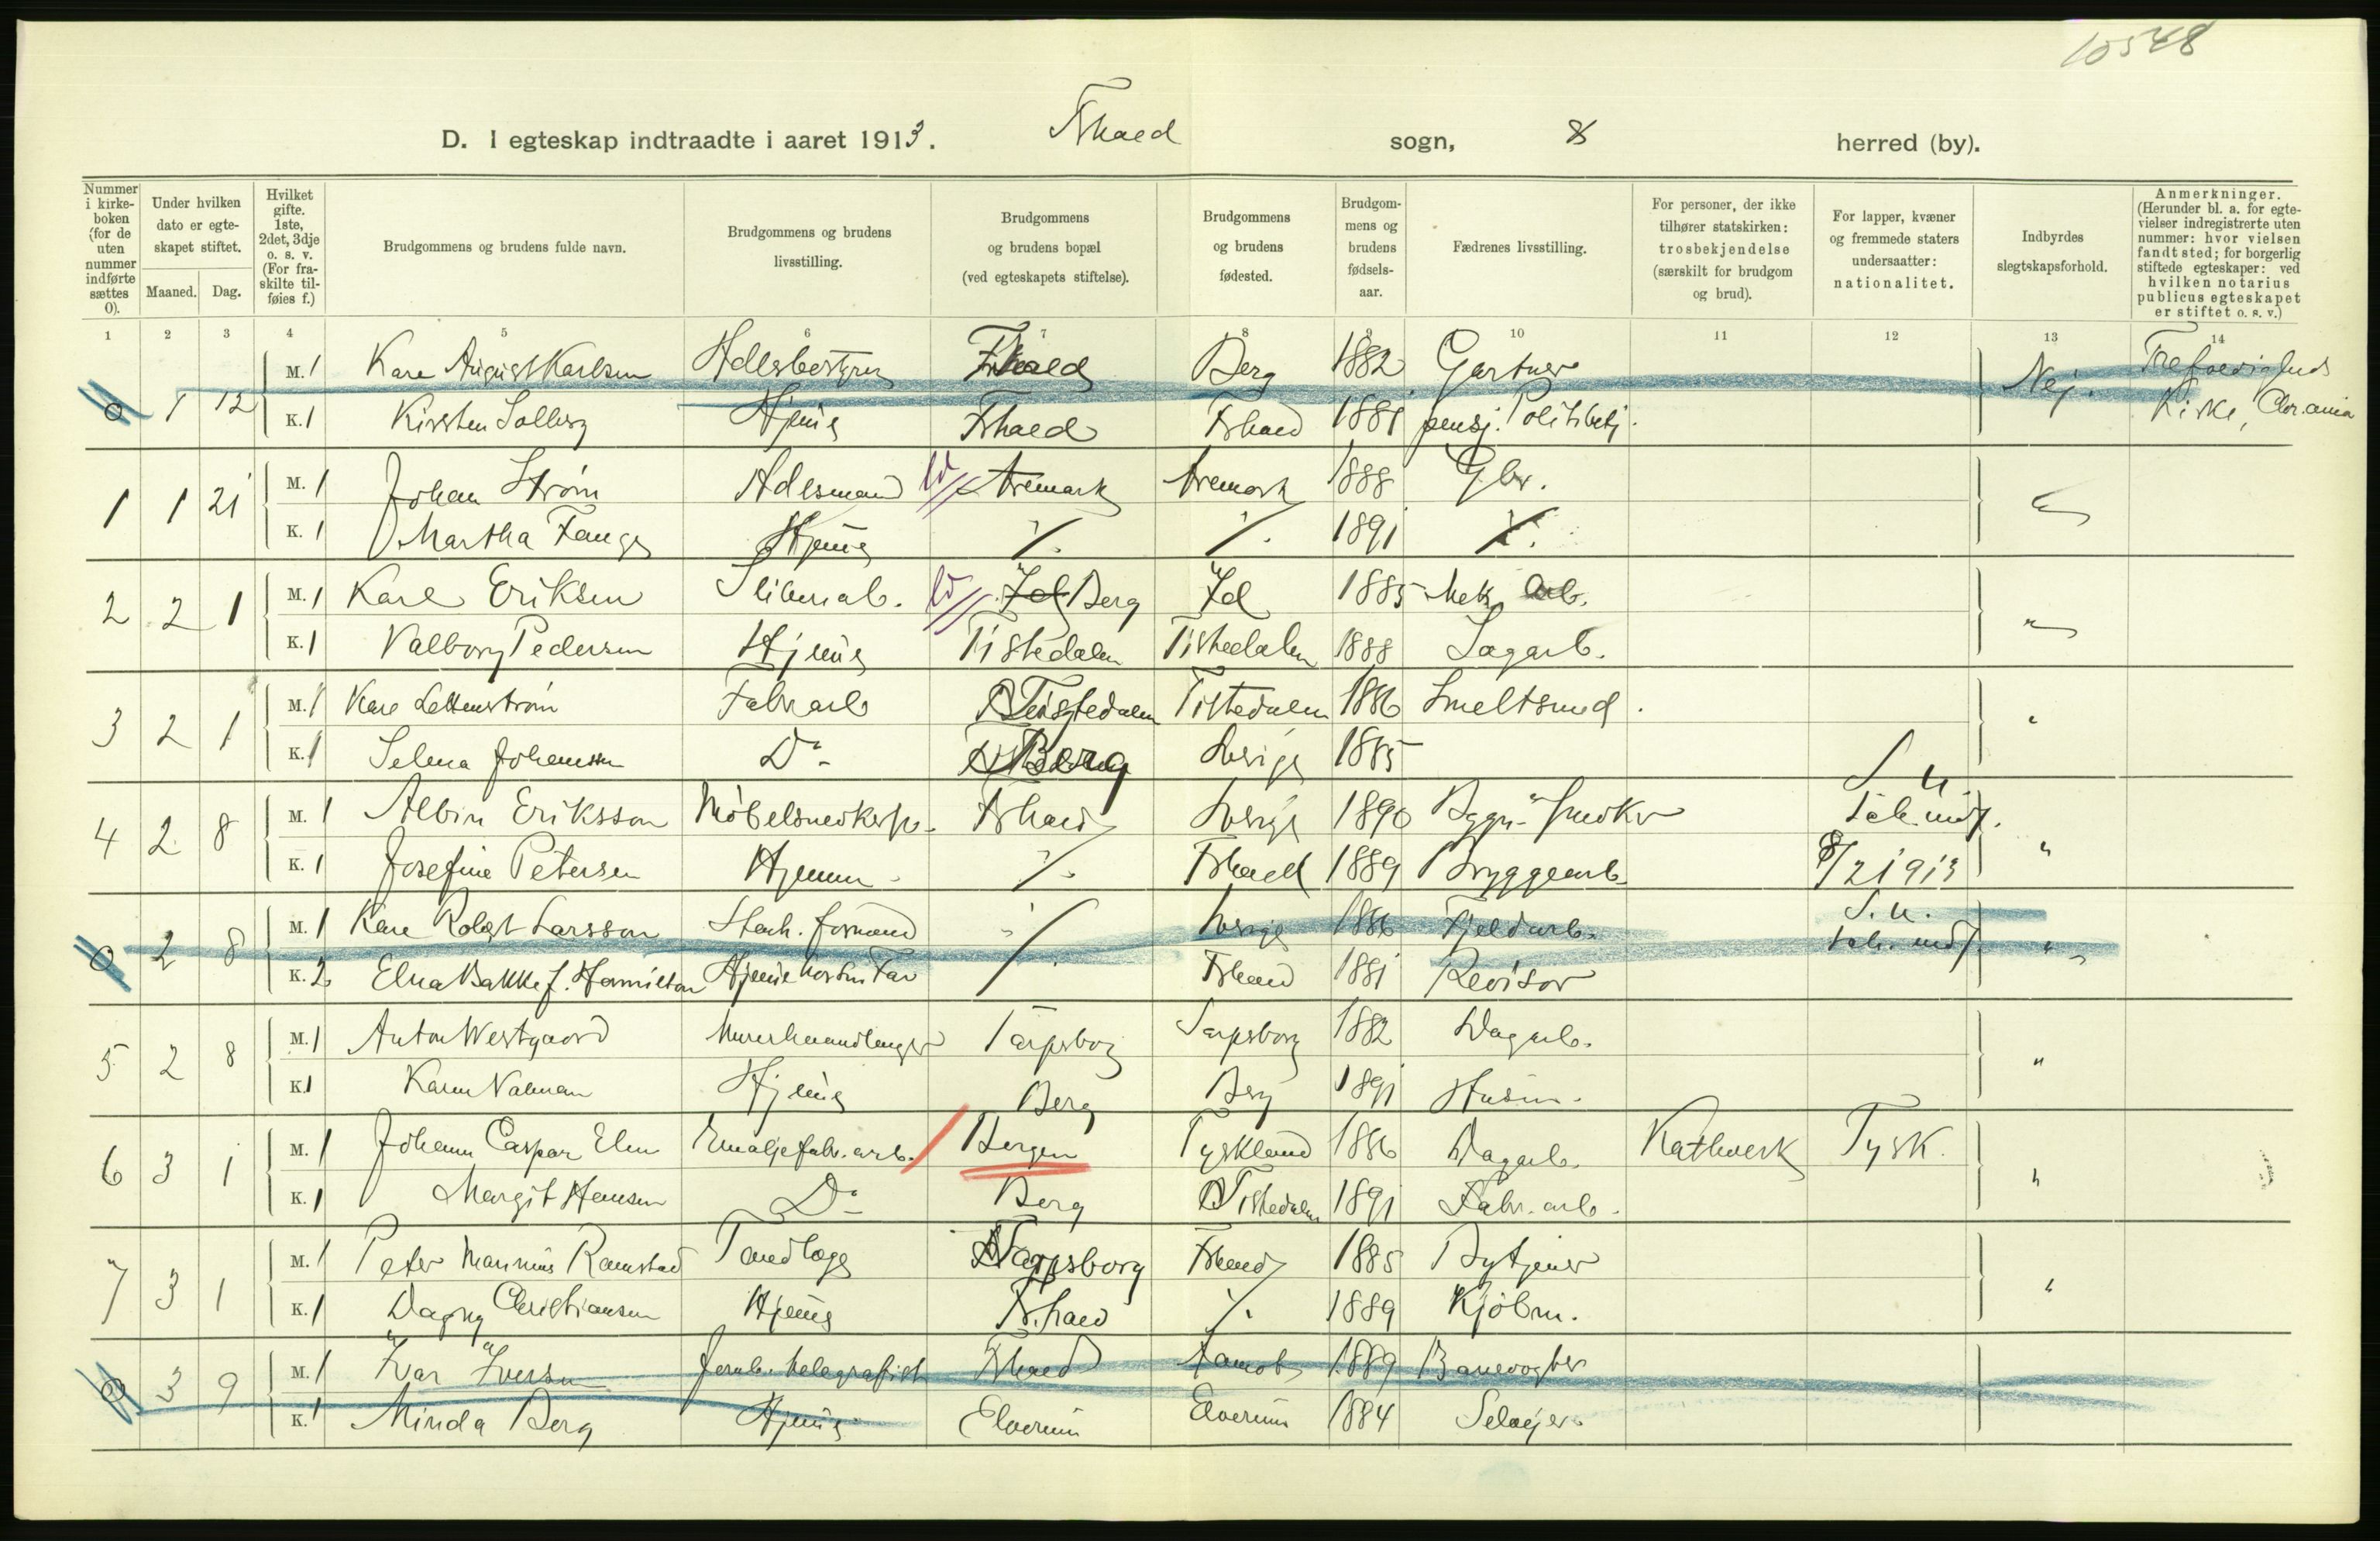 10548
D. I egteskap indtraadte i aaret 1913. Fhald sogn, herred (by).
Nummer i kirkeboken (for de uten nummer indførte sættes 0).
Under hvilken dato er egteskapet stiftet.
Maaned. Dag.
Hvilket gifte. 1ste, 2det, 3dje o. s. v. (For fraskilte tilføies f.)
Brudgommens og brudens fulde navn.
Brudgommens og brudens livsstilling.
Brudgommens og brudens bopæl (ved egteskapets stiftelse).
Brudgommens og brudens fødested.
Brudgommens og brudens fødselsaar.
Fædrenes livsstilling.
For personer, der ikke tilhører statskirken: trosbekjendelse (særskilt for brudgom og brud).
For lapper, kvæner og fremmede staters undersaatter: nationalitet.
Indbyrdes slegtskapsforhold.
Anmerkninger. (Herunder bl. a. for egtevielser indregistrerte uten nummer: hvor vielsen fandt sted; for borgerlig stiftede egteskaper: ved hvilken notarius publicus egteskapet er stiftet o. s. v.)
1 2 3 4 5 6 7 8 9 10 11 12 13 14
0 1 12 M. 1 Karl August Karlsen Fhald Berg 1882 Gartner Nei. Trefoldigheds
K. 1 Kirsten Solberg Hjem Fhald Fhald 1881 pensj. Politibetj. Kirke,
1 1 21 M. 1 Johan Strøm Aremark Aremark 1888 Gbr.
K. 1 Martha Fange Hjem ⁒ ⁒ 1891 ⁒
2 2 1 M. 1 Karl Eriksen Sliberiarb. Id Berg Id 1885 Mek. Arb.
K. 1 Valborg Pedersen Hjem Tistedalen Tistedalen 1888 Sagarb. "
3 2 1 M. 1 Karl Fabr arb Tistedalen Tistedalen 1886 Smeltsmed. "
K. 1 Selma Johansson Do Berg Sverige 1885
4 2 8 M. 1 Albin Eriksson Møbelsnedker Fhald Sverige 1890 Bygn. Snedker S. U.
K. 1 Josefine Petersen Hjemm ⁒ Fhald 1889 Bryggearb. 8/2 1913 "
0 2 8 M. 1 Karl Robert Larsson Stenh. formand ⁒ Sverige 1886 Fjeldarb. S. U. "
K. 2 Elna Bakke f. Hamilton Hjemme hos sin Far Fhald 1881 Revisor
5 2 8 M. 1 Anton Westgaard Murerhaandlanger Sarpsborg Sarpsborg 1882 Dagarb. "
K. 1 Karen Hjem Berg Berg 1891 Husm.
6 3 1 M. 1 Johann Caspar Elm Emaljefabr. arb. Bergen Tyskland 1886 Dagarb. Katholsk Tysk. "
K. 1 Margit Hansen Do Berg Tistedalen 1891 Fabr. arb.
7 3 1 M. 1 Peter Marinius Ramstad Tandlæge Sarpsborg Fhald 1885 Bytjener "
K. 1 Dagny Christiansen Hjem Fhald ⁒ 1889 Kjøbm.
0 3 9 M. 1 Ivar Iversen Jernb. telegrafist Fhald Aamot 1889 Banevogter
K. 1 Minda Berg Hjem Elverum Elverum 1884 Selveier